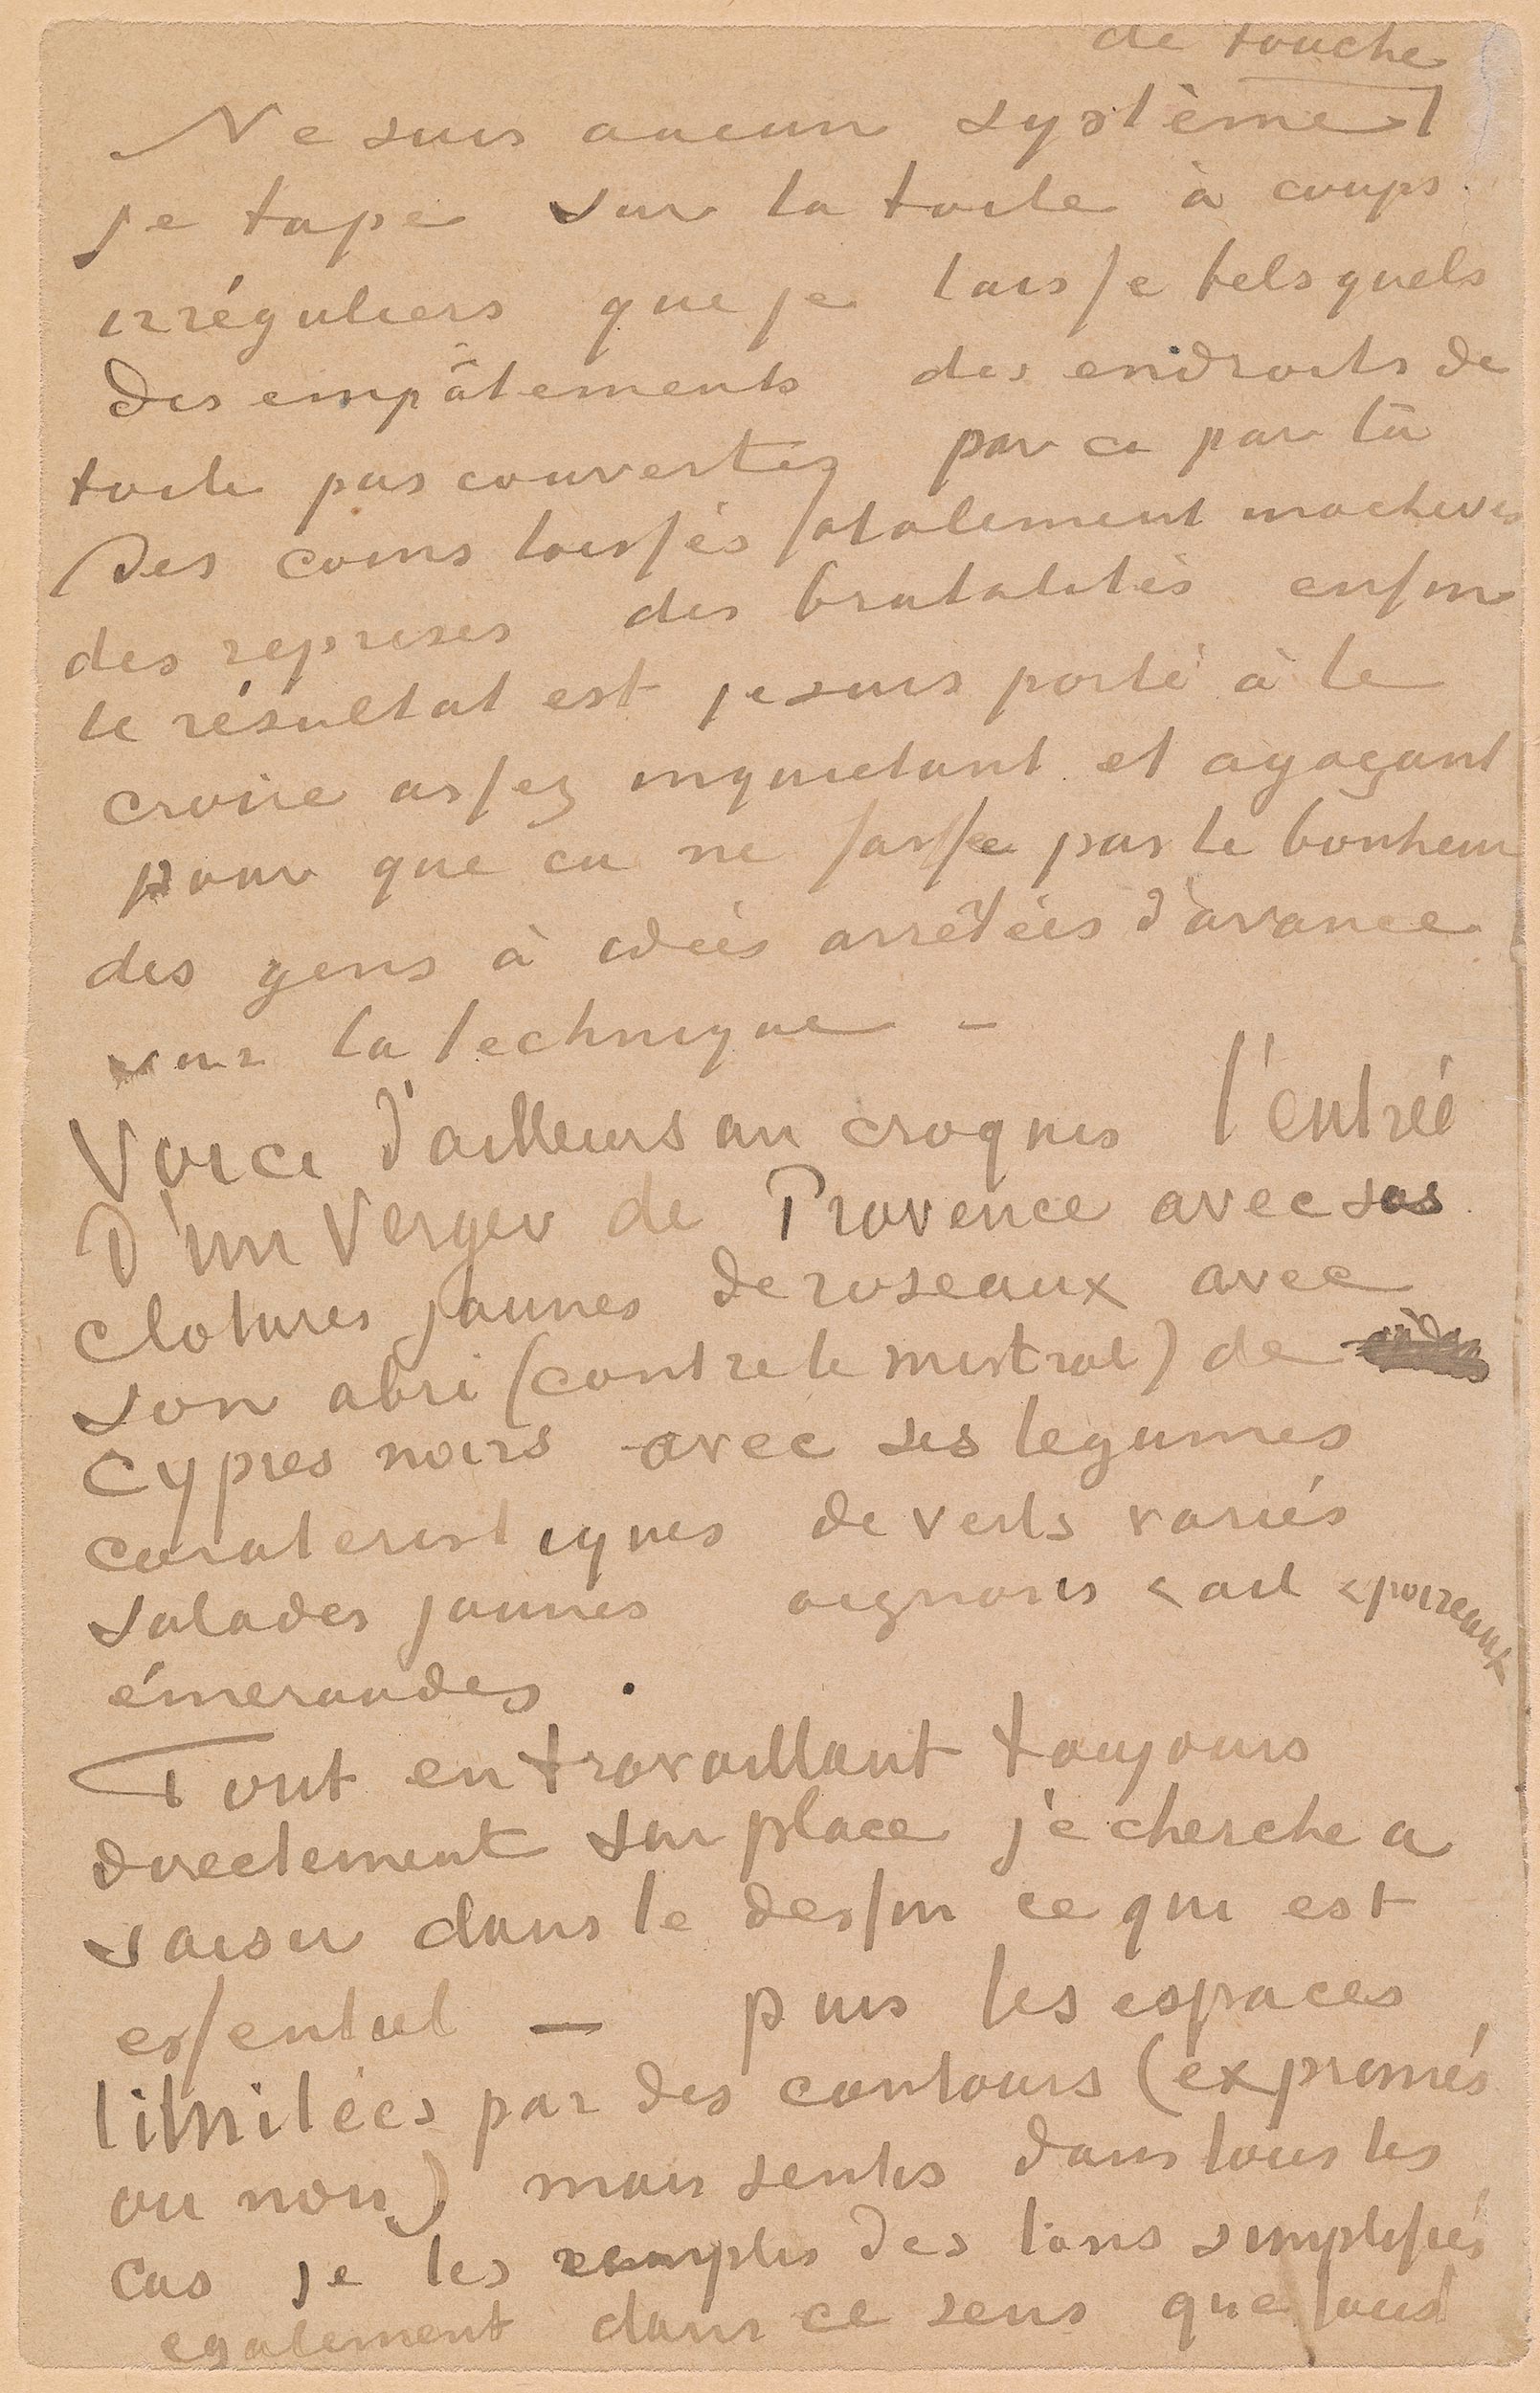 de touche
Ne suis aucun système
je tape sur la toile à coups
irréguliers que je laisse tels quels
Des empâtements des endroits de
toile pas couvertes par ci par là
Des coins laissés fatalement inachevés
des reprises des brutalités enfin
le résultat est je suis porté à le
croire assez inquietant et agaçant
pour que ca ne fasse pas le bonheur
des gens à idées arrêtées d'avance
sur la technique –
Voici d'ailleurs un croquis l'entrée
D'un verger de Provence avec ses
clotures jaunes de roseaux avec
son abri (contre le mistral) de
cypres noirs avec ses legumes
carateristiques de verts variés
salades jaunes oignons & ail & poireaux
émeraudes.
Tout en travaillant toujours
directement sur place je cherche a
saisir dans le dessin ce qui est
essentiel — puis les espaces
limitées par des contours (exprimés
ou non) mais sentis dans tous les
cas je les remplis des tons simplifiés
egalement dans ce sens que tout